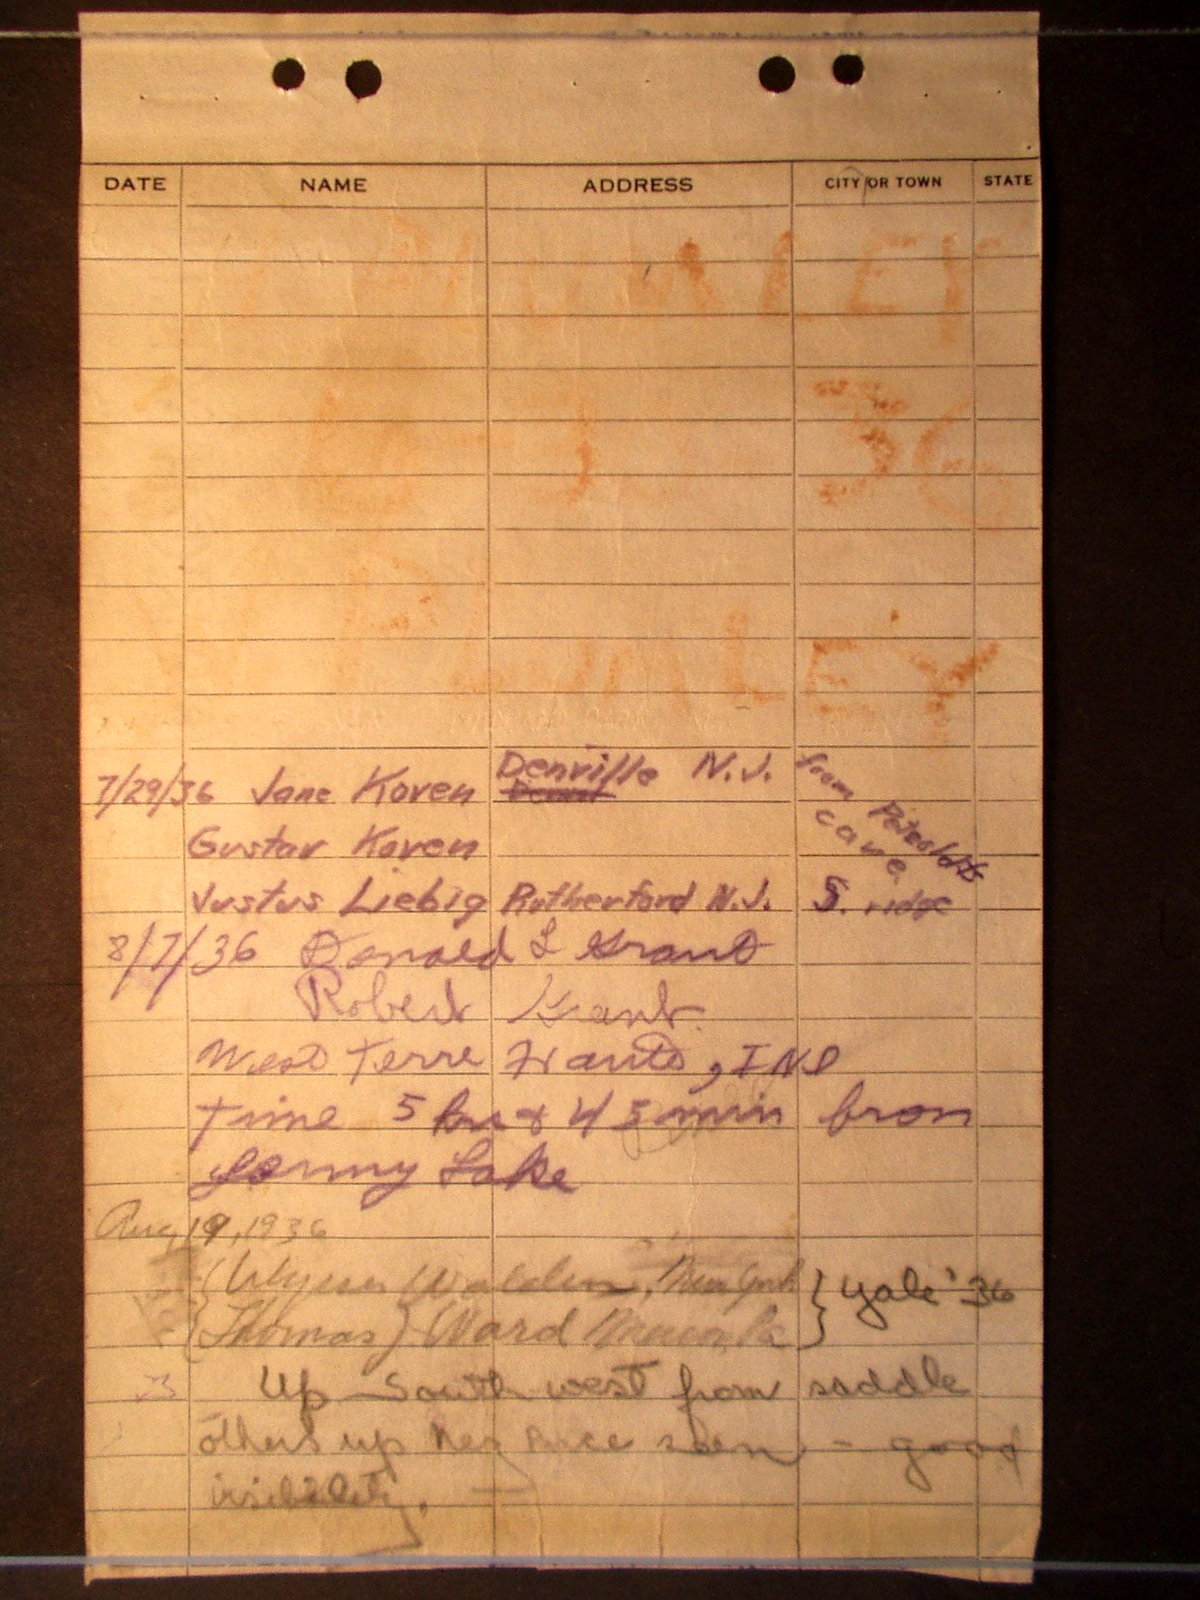 DATE NAME ADDRESS CITY OR TOWN STATE
36
7/29/36 Jane Koven Denville N.J. from Petzoldts cave
Gustav Koven
Justus Liebig Rutherford N.J. S. ridge
8/7/36 Donald L Grant
Robert Grant
West Terre Haute, IND
Time 5 hrs & 45 min from
Jenny Lake
Aug 19, 1936
Ulysses Walden, New York } Yale '36
Thomas J. Ward
Up South west from saddle
others up - good
visibility.